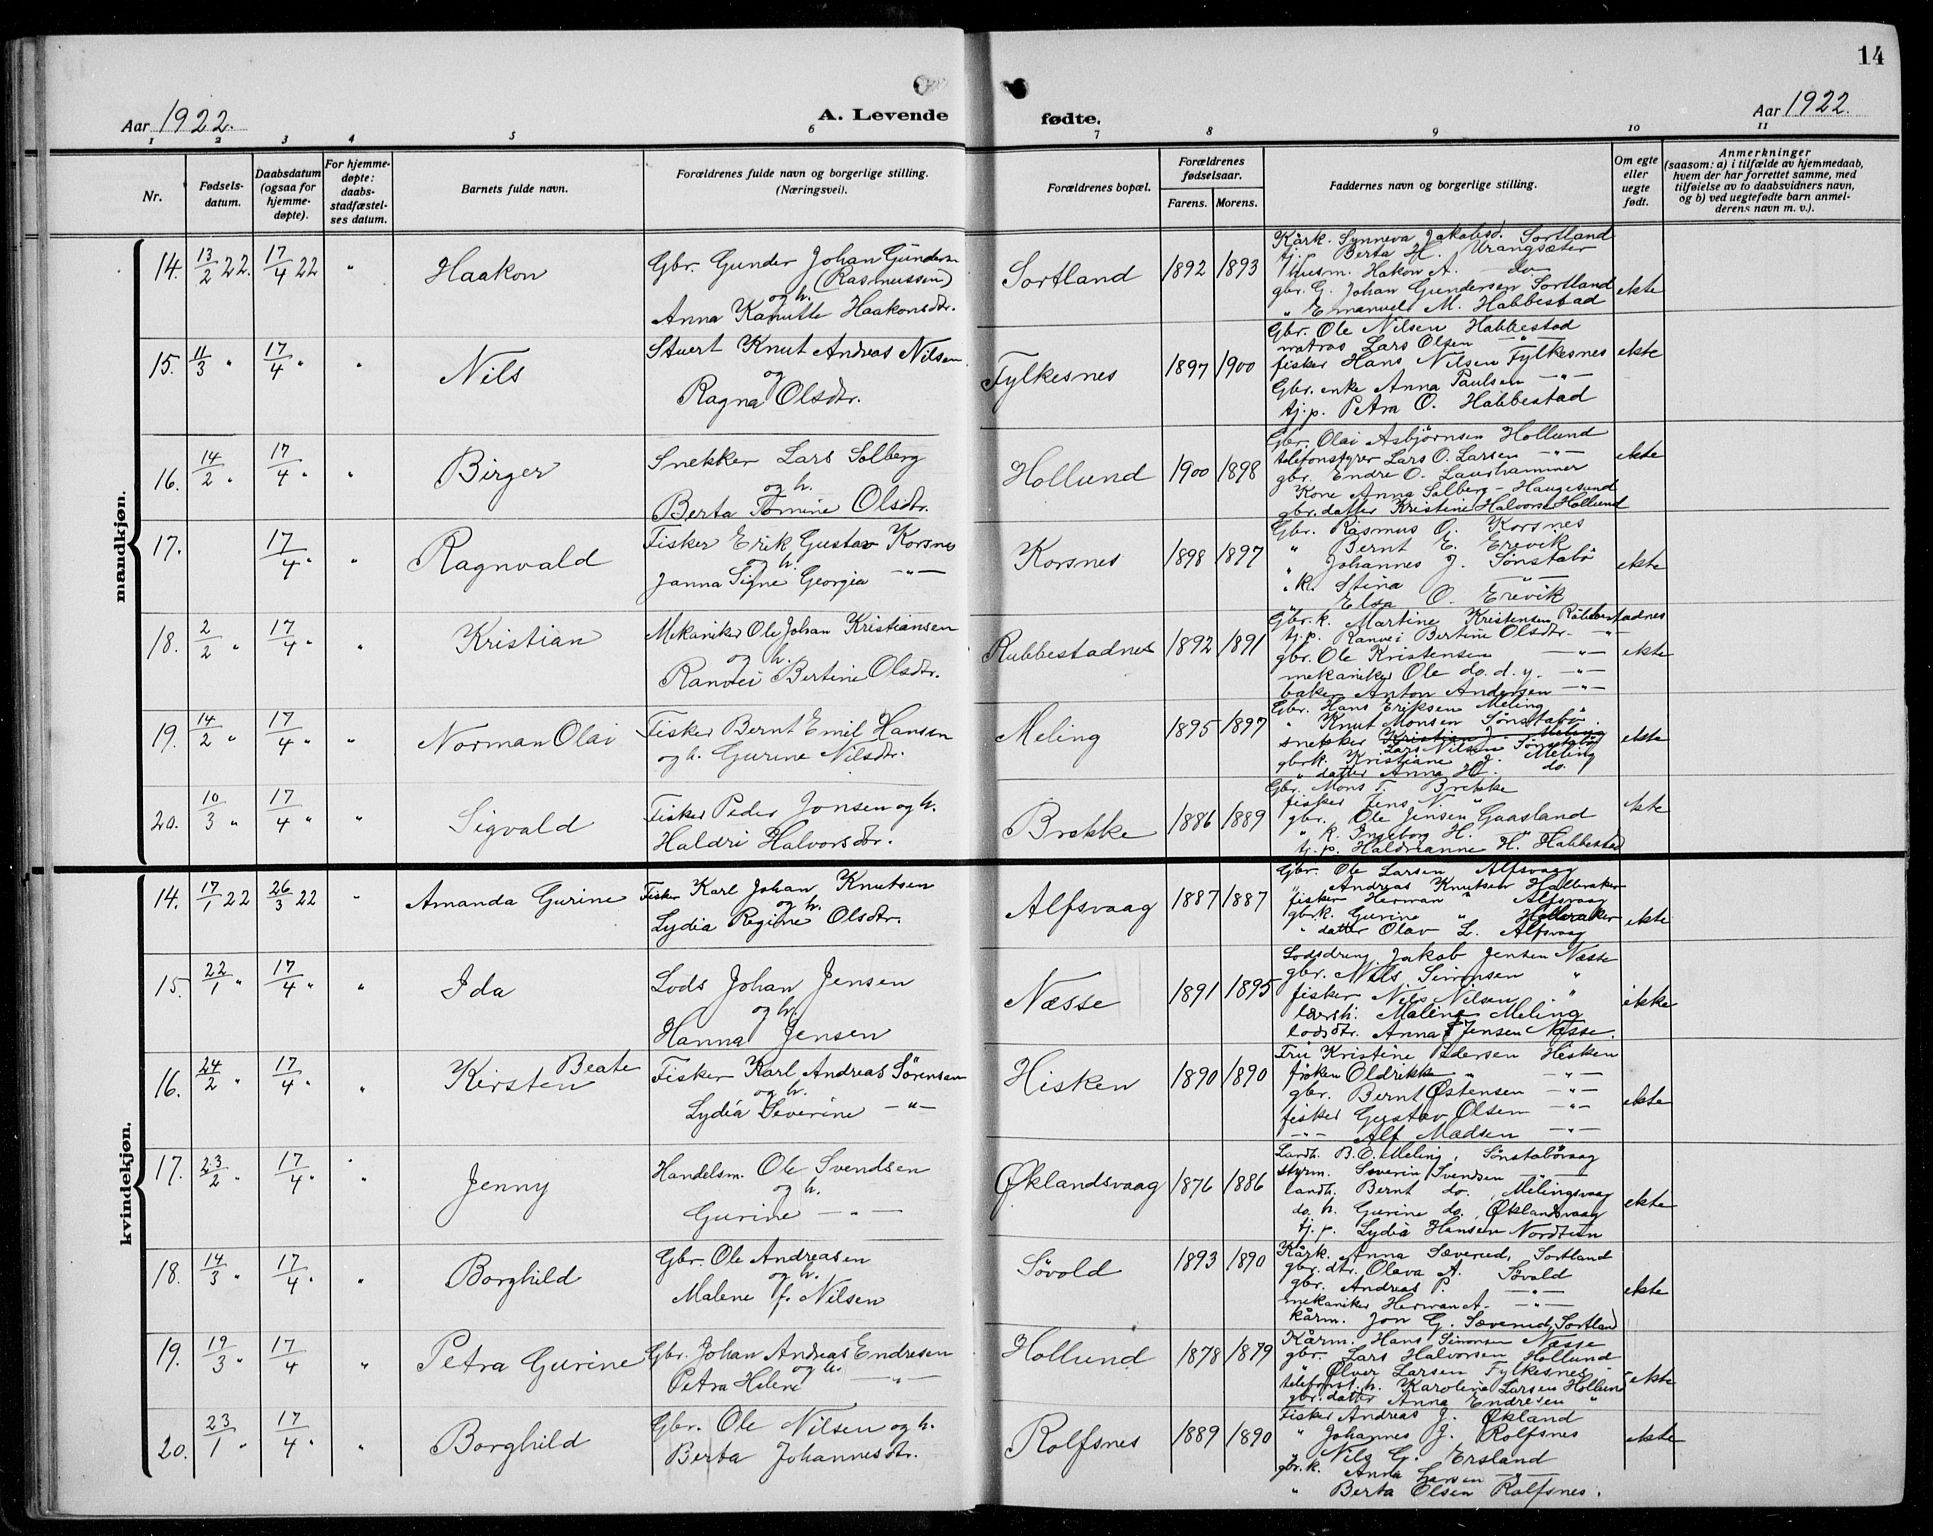 14
Aar 1922.
A. Levende fødte.
Aar 1922.
1 2 3 4 5 6 7 8 9 10 11
Nr.
Fødsels-
datum.
Daabsdatum
(ogsaa for
hjemme-
døpte).
For hjemme-
døpte:
daabs-
stadfæstel-
ses datum.
Barnets fulde navn.
Forældrenes fulde navn og borgerlige stilling.
(Næringsvei).
Forældrenes bopæl.
Forældrenes
fødselsaar.
Farens. Morens.
Faddernes navn og borgerlige stilling.
Om egte
eller
uegte
født.
Anmerkninger
(saasom: a) i tilfælde av hjemmedaab,
hvem der har forrettet samme, med
tilføielse av to daabsvidners navn,
og b) ved uegtefødte barn anmel-
derens navn m. v.).
mandkjøn.
14. 13/2 22. 17/4 22 " Haakon
Gbr. Gunder Johan Gundersen
(Rasmussen)
og h.
Anna Kanutte Haakonsdtr.
Sortland 1892 1893
Kårk. Synneva Jakobsd. Sortland
tj. Berta H. Vrangsæter
Husm. Hakon A. do
gbr. G. Johan Gundersen Sortland
" Emanuel M. Habbestad
ekte
15. 11/3 " 17/4 " " Nils
Stuert Knut Andreas Nilsen
og
Ragna Olsdtr.
Fylkesnes 1897 1900
Gbr. Ole Nilsen Habbestad
matros Lars Olsen — " —
fisker Hans Nilsen Fylkesnes
Gbr. enke Anna Paulsen — " —
tj.p. Petra O. Habbestad
ekte
16. 14/2 " 17/4 " " Birger
Snekker Lars Solberg
og h.
Berta Tomine Olsdtr.
Hollund 1900 1898
Gbr. Olai Asbjørnsen Hollund
telefonstyrer Lars O. Larsen — " —
gbr. Endre O. Laurhammer
Kone Anna Solberg - Haugesund
gbr. datter Kristine Halvorsd. Hollund
ekte
17. 17/4 " " Ragnvald
Fisker Erik Gustav Korsnes
og h.
Janna Signe Georgia — " —
Korsnes 1898 1897
Gbr. Rasmus O. Korsnes
" Bernt E. Erevik
" Johannes J. Sønstabø
" k. Stina — " —
" Elsa O. Erevik
ekte
18. 2/2 " 17/4 " " Kristian
Mekaniker Ole Johan Kristiansen
og h.
Ranvei Bertine Olsdtr.
Rubbestadnes 1892 1891
Gbr. k. Martine Kristensen Rubbestadnes
tj.p. Ranvei Bertine Olsdtr. — " —
gbr. Ole Kristensen — " —
mekaniker Ole do. d. y. — " —
baker Anton Andersen — " —
ekte
19. 14/2 " 17/4 " " Norman Olai
Fisker Bernt Emil Hansen
og h. Gurine Nilsdtr.
Meling 1895 1897
Gbr. Hans Eriksen Meling
" Knut Monsen Sønstabø.
snekker Kristian J. Meling
Lars Nilsen Sønstabø
gbrk. Kristiane J. Meling
" datter Anna H. do.
ekte
20. 10/3 " 17/4 " " Sigvald
Fisker Peder Jonsen og h.
Haldri Halvorsdtr.
Brekke 1886 1889
Gbr. Mons T. Brekke
fisker Jens N. "
gbr. Ole Jensen Gaasland
" k. Ingeborg H. — " —
tj. p. Haldrianne H. Habbestad
ekte
kvindekjøn.
14. 17/1 22 26/3 22 " Amanda Gurine
Fisker Karl Johan Knutsen
og h.
Lydia Regine Olsdtr.
Alfsvaag 1887 1887
Gbr. Ole Larsen Alfsvaag
" Andreas Knutsen Hallvaker
fisker Herman " Alfsvaag
gbrk. Gurine " Hallvaker
" datter Olav L. Alfsvaag
ekte
15. 22/1 " 17/4 " " Ida
Lods Johan Jensen
og h.
Hanna Jensen
Næsse 1891 1895
Lodsdreng Jakob Jensen Næsse
gbr. Nils Simonsen "
fisker Nils Nilsen "
lærerh. Malene Meling
lodsdtr. Anna J. Jensen Næsse.
ekte
16. 24/2 " 17/4 " " Kirsten Beate
Fisker Karl Andreas Sørensen
og h.
Lydia Severine — " —
Hisken 1890 1890
Fru Kristine Pedersen Hisken
frøken Oldrikke " — " —
gbr. Bernt Østensen — " —
fisker Gustav Olsen — " —
— " — Alf Madsen — " —
ekte
17. 23/2 " 17/4 " " Jenny
Handelsm. Ole Svendsen
og h.
Gurine — " —
Øklandsvaag 1876 1886
Landh. B. E. Meling, Sønstabøvaag
styrm. Severin Svendsen — " —
landh. Bernt do. Melingsvaag
do. h. Gurine do. Øklandsvaag
tj. p. Lydia Hansen Nordtun
ekte
18. 14/3 " 17/4 " " Borghild
Gbr. Ole Andreasen
og h.
Malene f. Nilsen
Søvold 1893 1890
Kårk. Anna Sæverud, Sortland
gbr. dtr. Olava A. Søvold
gbr. Andreas P. — " —
mekaniker Herman A. — " —
kårm. Jon G. Sæverud, Sortland
ekte
19. 19/3 " 17/4 " Petra Gurine
Gbr. Johan Andreas Endresen
og h.
Petra Helene — " —
Hollund 1878 1879
Kårm. Hans Simonsen Næsse
gbr. Lars Halvorsen Hollund
" Ølver Larsen Fylkesnes
telefonst. h. Karoline Larsen Hollund
gbr. datter Anna Endresen "
ekte
20. 23/1 " 17/4 " " Borghild
Gbr. Ole Nilsen og h.
Berta Johannesdtr.
Rolfsnes 1889 1890
Fisker Andreas J. Økland
" Johannes J. Rolfsnes
" Nils G. Ersland
gbr. k. Anna Larsen — " —
" Berta Olsen Rolfsnes.
ekte